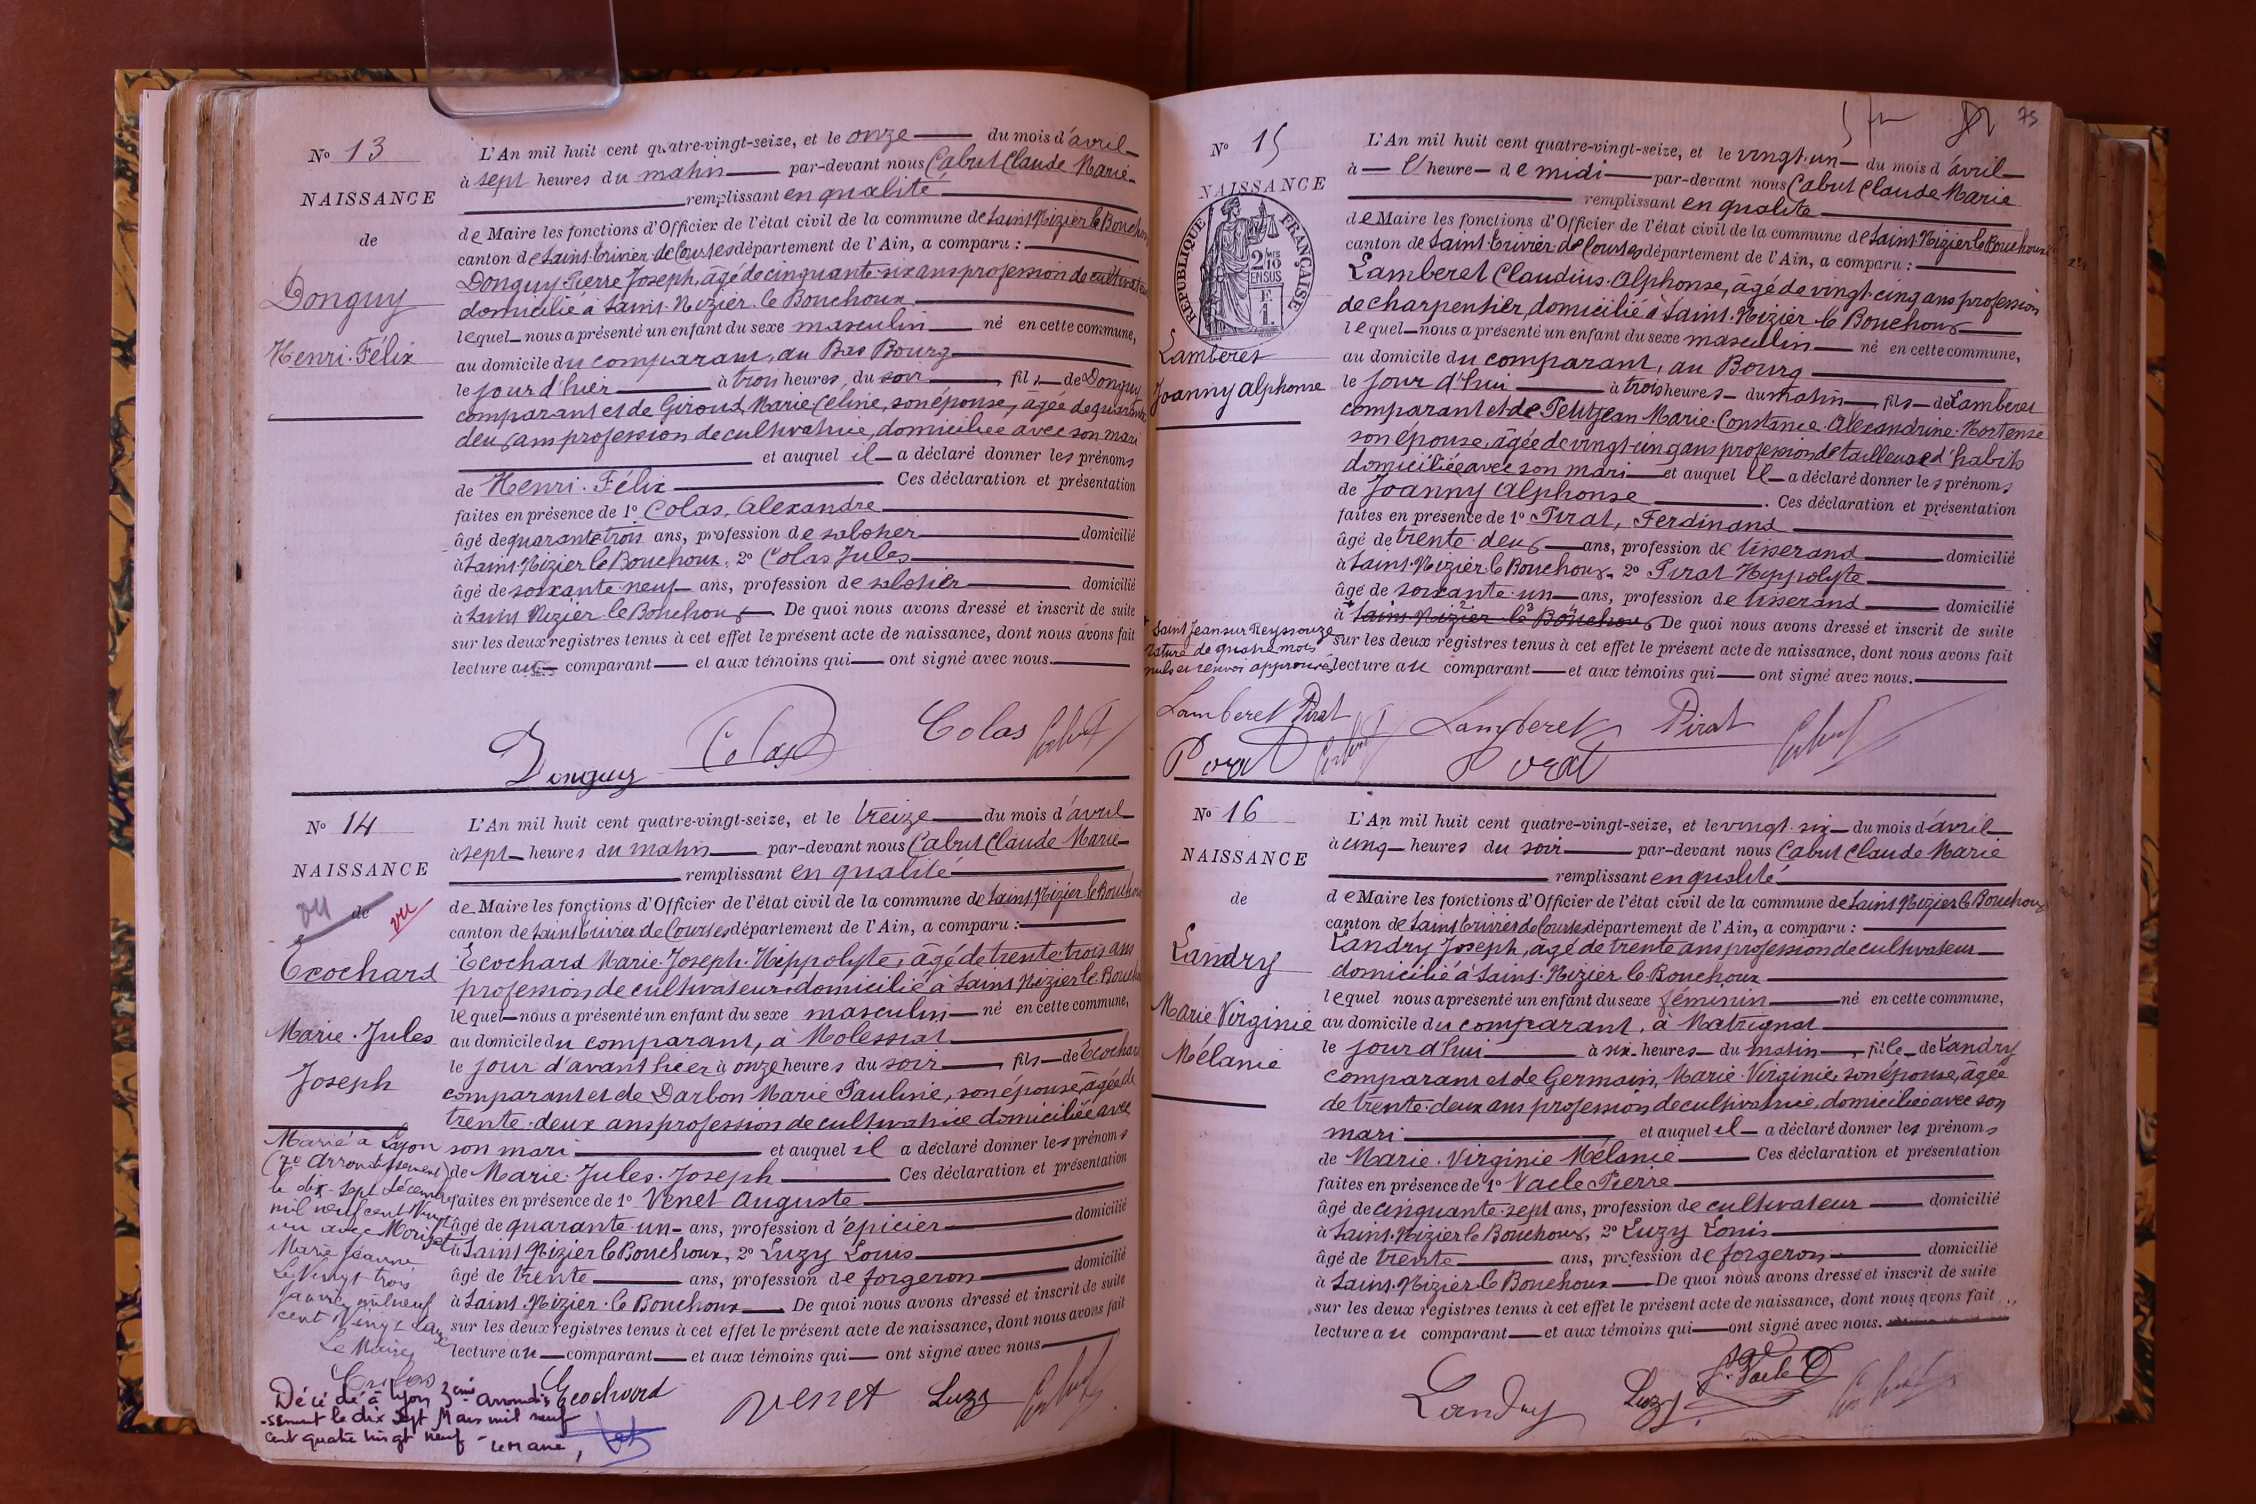 75
N° 13
NAISSANCE
de
Donguy
Henri. Félix
L'An mil huit cent quatre-vingt-seize, et le onze du mois d'avril
à sept heures du matin par-devant nous Cabut Claude Marie
remplissant en qualité
de Maire les fonctions d'Officier de l'état civil de la commune de Saint Nizier le Bouchoux
canton de Saint-Trivier de Courtes département de l'Ain, a comparu :
Donguy Pierre Joseph, âgé de cinquante-six ans profession de cultivateur
domicilié à Saint-Nizier-le Bouchoux
lequel nous a présenté un enfant du sexe masculin né en cette commune,
au domicile du comparant, au Bas Bourg
le jour d'hier à trois heures du soir, fils de Donguy
comparant et de Giroud Marie Céline, son épouse, âgée de quarante
deux ans profession de cultivatrice, domiciliée avec son mari
et auquel il a déclaré donner les prénoms
de Henri. Félix Ces déclaration et présentation
faites en présence de 1° Colas, Alexandre
âgé de quarante trois ans, profession de sabotier domicilié
à Saint-Nizier le Bouchoux, 2° Colas Jules
âgé de soixante-neuf ans, profession de sabotier domicilié
à Saint Nizier le Bouchoux De quoi nous avons dressé et inscrit de suite
sur les deux registres tenus à cet effet le présent acte de naissance, dont nous avons fait
lecture au comparant et aux témoins qui ont signé avec nous.
Donguy Colas Colas Cabut
N° 14
NAISSANCE
de
vu vu
Ecochard
Marie. Jules
Joseph
L'An mil huit cent quatre-vingt-seize, et le treize du mois d'avril
à sept heures du matin par-devant nous Cabut Claude Marie
remplissant en qualité
de Maire les fonctions d'Officier de l'état civil de la commune de Saint Nizier le Bouchoux
canton de Saint Trivier de Courtes département de l'Ain, a comparu :
Ecochard Marie Joseph. Hippolyte, âgé de trente-trois ans
profession de cultivateur domicilié à Saint Nizier le Bouchoux
lequel nous a présenté un enfant du sexe masculin né en cette commune,
au domicile du comparant, à Molessiat
le jour d'avant hier à onze heures du soir, fils de Ecochard
comparant et de Darbon Marie Pauline, son épouse, âgée de
trente-deux ans profession de cultivatrice domiciliée avec
son mari et auquel il a déclaré donner les prénoms
de Marie. Jules. Joseph Ces déclaration et présentation
faites en présence de 1° Venet Auguste
âgé de quarante-un ans, profession d'épicier domicilié
à Saint Nizier le Bouchoux, 2° Luzy Louis
âgé de trente ans, profession de forgeron domicilié
à Saint-Nizier-le Bouchoux De quoi nous avons dressé et inscrit de suite
sur les deux registres tenus à cet effet le présent acte de naissance, dont nous avons fait
lecture au comparant et aux témoins qui ont signé avec nous
Marié à Lyon
(7e Arrondissement)
le dix-sept décembre
mil neuf cent vingt
un avec
Marie Jeanne
Le vingt trois
janvier mil neuf
cent vingt
Le Maire,
Décédé à Lyon 3ème arrondis
-sement le dix sept Mars mil neuf
cent quatre vingt neuf - le Maire,
Ecochard Venet Luzy Cabut
N° 15
NAISSANCE
RÉPUBLIQUE FRANÇAISE
2/10 EN SUS
Lamberet
Joanny Alphonse
L'An mil huit cent quatre-vingt-seize, et le vingt-un du mois d'avril
à l'heure de midi par-devant nous Cabut Claude Marie
remplissant en qualité
de Maire les fonctions d'Officier de l'état civil de la commune de Saint-Nizier le Bouchoux
canton de Saint-Trivier de Courtes département de l'Ain, a comparu :
Lamberet Claudius. Alphonse, âgé de vingt-cinq ans profession
de charpentier, domicilié à Saint-Nizier le Bouchoux
lequel nous a présenté un enfant du sexe masculin né en cette commune,
au domicile du comparant, au Bourg
le jour d'hui à trois heures du matin, fils de Lamberet
comparant et de Petitjean Marie. Constance. Alexandrine. Hortense
son épouse, âgée de vingt-cinq ans profession de tailleuse d'habits
domiciliée avec son mari et auquel il a déclaré donner les prénoms
de Joanny Alphonse. Ces déclaration et présentation
faites en présence de 1° Pirat, Ferdinand
âgé de trente-deux ans, profession de tisserand domicilié
à Saint-Nizier-le Bouchoux, 2° Pirat Hippolyte
âgé de soixante-un ans, profession de tisserand domicilié
à Saint Nizier le Bouchoux De quoi nous avons dressé et inscrit de suite
sur les deux registres tenus à cet effet le présent acte de naissance, dont nous avons fait
lecture au comparant et aux témoins qui ont signé avec nous.
Saint Jean sur Reyssouze
rature de quatre mots
nuls et renvoi approuvés
Lamberet Pirat Lamberet Pirat Cabut
Pirat Cabut Pirat
N° 16
NAISSANCE
de
Landry
Marie Virginie
Mélanie
L'An mil huit cent quatre-vingt-seize, et le vingt-six du mois d'avril
à cinq heures du soir par-devant nous Cabut Claude Marie
remplissant en qualité
de Maire les fonctions d'Officier de l'état civil de la commune de Saint Nizier le Bouchoux
canton de Saint Trivier de Courtes département de l'Ain, a comparu :
Landry Joseph, âgé de trente ans profession de cultivateur
domicilié à Saint-Nizier le Bouchoux
lequel nous a présenté un enfant du sexe féminin né en cette commune,
au domicile du comparant, à Matrignat
le jour d'hui à six heures du matin, fille de Landry
comparant et de Germain, Marie-Virginie, son épouse, âgée
de trente-deux ans profession de cultivatrice, domiciliée avec son
mari et auquel il a déclaré donner les prénoms
de Marie. Virginie Mélanie Ces déclaration et présentation
faites en présence de 1° Vacle Pierre
âgé de cinquante-sept ans, profession de cultivateur domicilié
à Saint-Nizier le Bouchoux, 2° Luzy Louis
âgé de trente ans, profession de forgeron domicilié
à Saint-Nizier-le Bouchoux De quoi nous avons dressé et inscrit de suite
sur les deux registres tenus à cet effet le présent acte de naissance, dont nous avons fait
lecture au comparant et aux témoins qui ont signé avec nous.
Landry Luzy Vacle Cabut